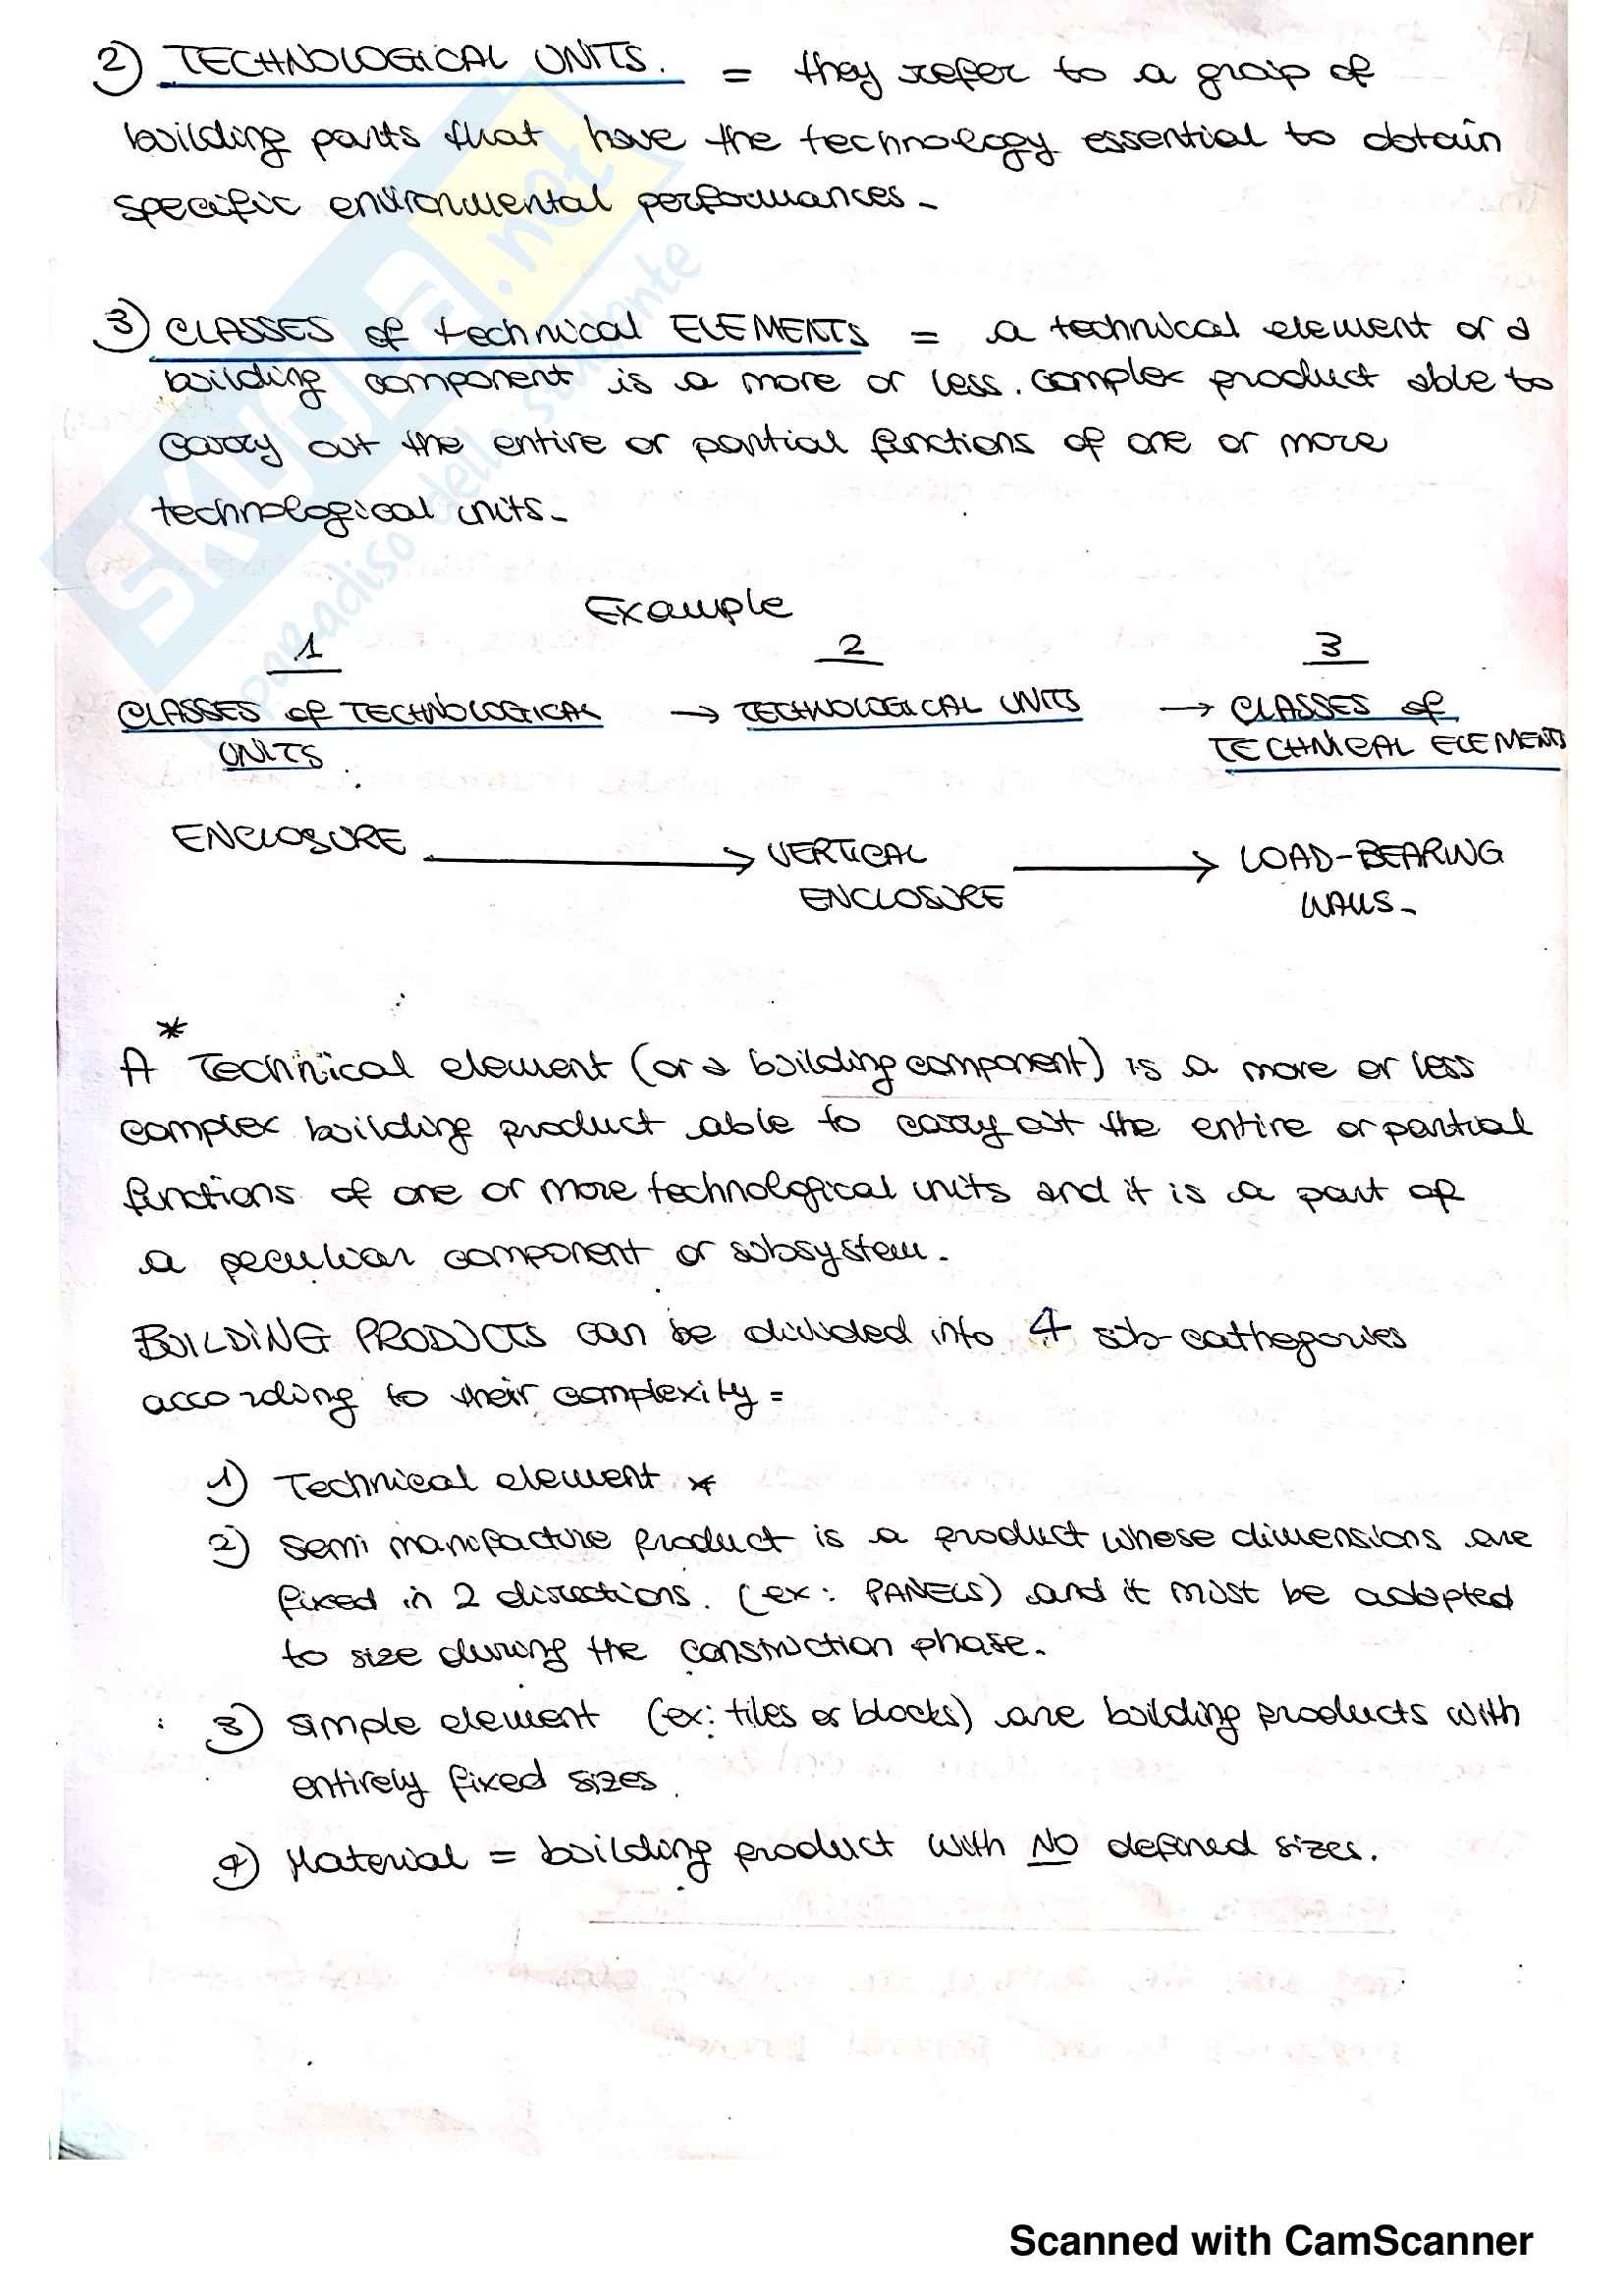 2) TECHNOLOGICAL UNITS. = they refer to a group of
building parts that have the technology essential to obtain
specific environmental performances-
3) CLASSES of technical ELEMENTS = a technical element or a
building component is a more or less. complex product able to
carry out the entire or partial functions of one or more
technological units-
Example
1 2 3
CLASSES of TECHNOLOGICAL → TECHNOLOGICAL UNITS → CLASSES of
UNITS TECHNICAL ELEMENTS
ENCLOSURE → VERTICAL → LOAD-BEARING
ENCLOSURE WALLS-
*
A Technical element (or a building component) is a more or less
complex building product able to carry out the entire or partial
functions of one or more technological units and it is a part of
a peculiar component or subsystem.
BUILDING PRODUCTS can be divided into 4 sub-cathegories
according to their complexity =
1) Technical element *
2) Semi manifacture product is a product whose dimensions are
fixed in 2 directions. (ex: PANELS) and it must be adapted
to size during the construction phase.
3) simple element (ex: tiles or blocks) are building products with
entirely fixed sizes.
4) Material = building product with NO defined sizes.
SKUOLA.net
paradiso dello studente
Scanned with CamScanner